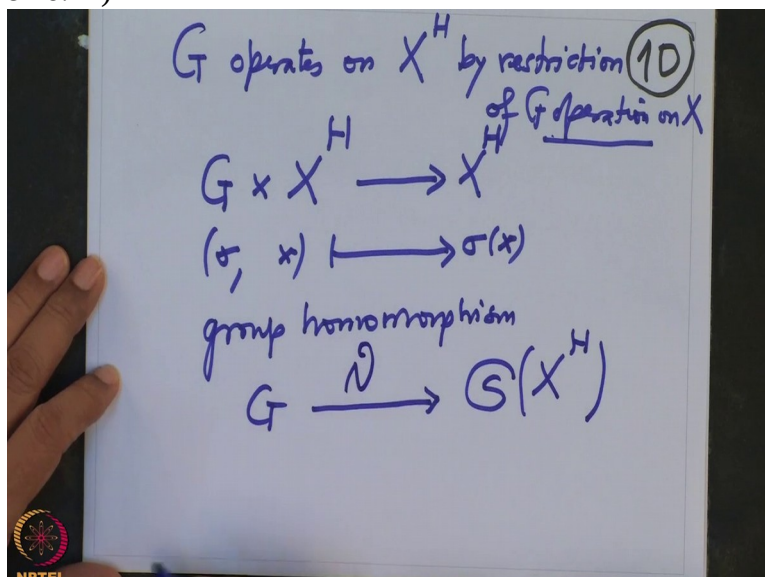 G operates on X^H by restriction 10
of G operation on X
G × X^H ⟶ X^H
(σ, x) ⟼ σ(x)
group homomorphism
G ⟶ 𝔖(X^H)
NPTEL